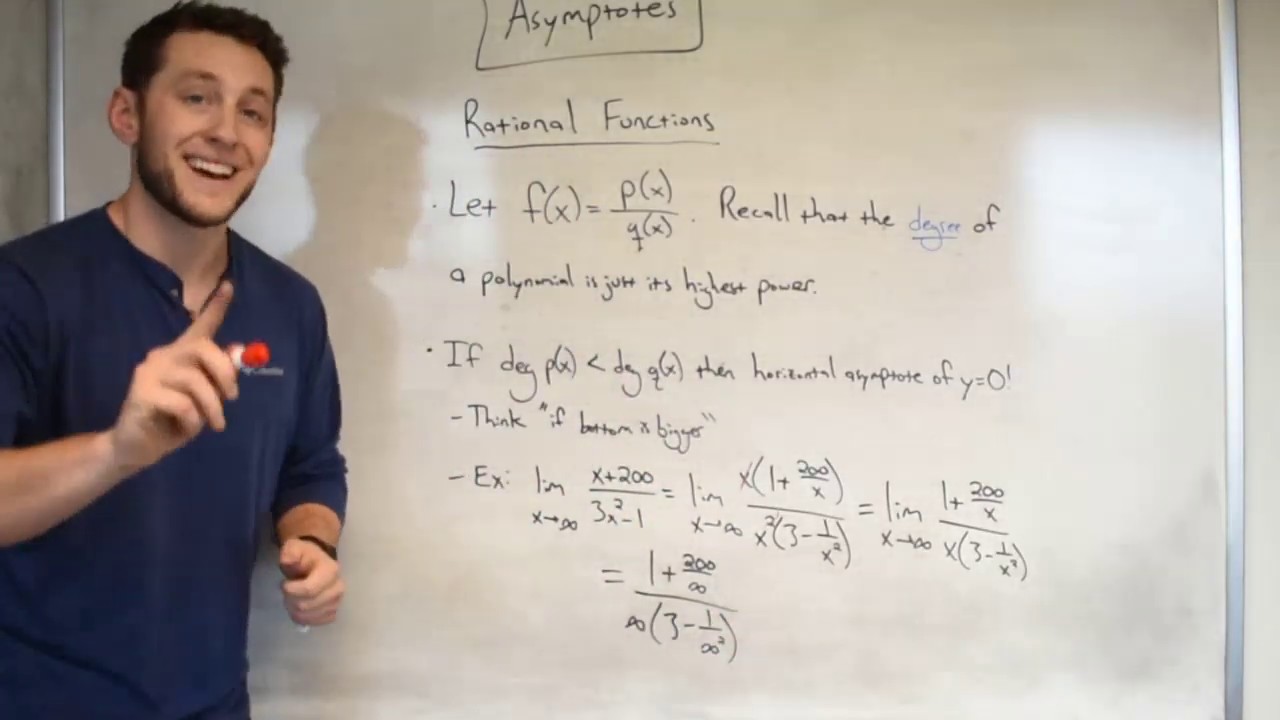 Asymptotes
Rational Functions
· Let f(x) = p(x)/q(x). Recall that the degree of
a polynomial is just its highest power.
· If deg p(x) < deg q(x) then horizontal asymptote of y=0!
- Think "if bottom is bigger"
- Ex: lim x→∞ (x+200)/(3x²-1) = lim x→∞ x(1+200/x)/x²(3-1/x²) = lim x→∞ (1+200/x)/x(3-1/x²)
= (1+200/∞)/∞(3-1/∞²)